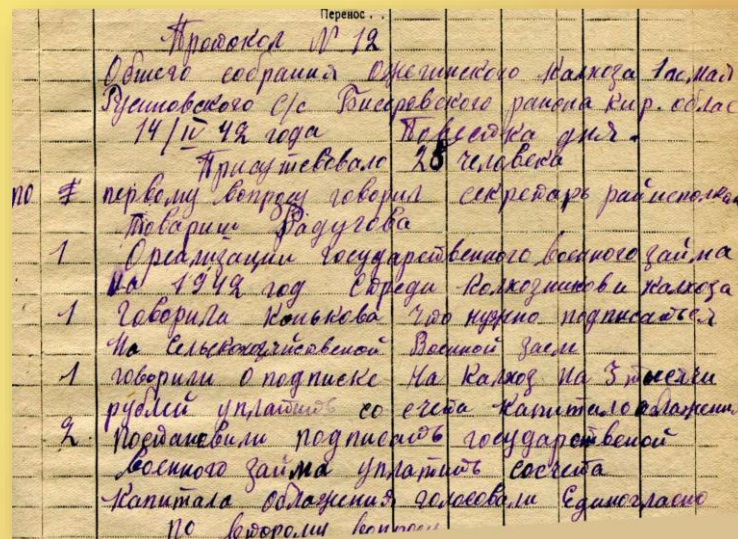 Перенос . .
Протокол № 12
Общего собрания Ожегинского Калхоза 1ое май
Русиновского С/с Бисеровского района Кир. облас
14/IV 42 года Повестка дня.
Присутевовало 25 человека
по первому вопросу говорил секретарь райисполка
товарищ Радугова
1 Ореализации государственного военного займа
на 1942 год Среди Колхозникови Калхоза
1 Говорила Конькова что нужно подписатся
На Военной Заем
1 говорили О подписке На Калхоз на 3 тысячи
рублей уплатить со счета Капитало
2. Постановили подписать государственой
Военного займа уплатить сосчета
Капитала голосовали Единогласно
по второму вопросу